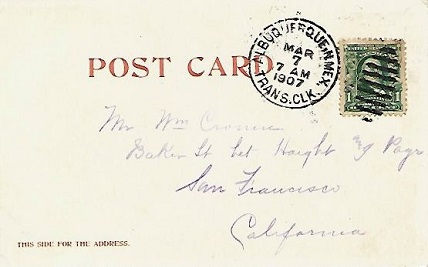 POST CARD.
ALBUQUERQUE, N.MEX.
MAR
7
7 AM
1907
TRANS. CLK.
1 1
Mr Wm
Baker St bet Haight & Page
San Francisco
California
THIS SIDE FOR THE ADDRESS.